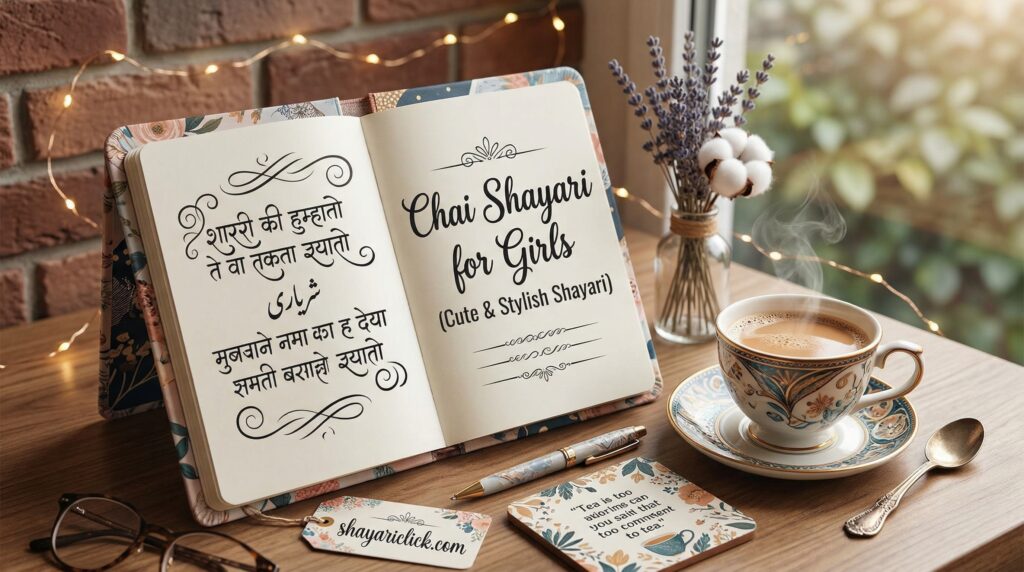 शाररी की हुम्हातो
ते वा तकता स्यातो
شریاری
मुबवाने नमा का ह देया
समती बसाह्नो स्यातो
Chai Shayari
for Girls
(Cute & Stylish Shayari)
shayariclick.com
"Tea is too
axiorims can
you saiit that
too comment
to tea"